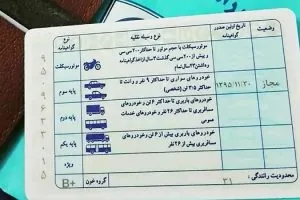 وضعیت
تاریخ اولین صدور گواهینامه
نوع وسیله نقلیه
نوع گواهینامه
موتورسیکلت با حجم موتور تا حداکثر ۲۰۰ سی سی
موتورسیکلت
مجاز
۱۳۹۵/۱۱/۳۰
خودروهای سواری تا حداکثر ۹ نفر و وانت تا
حداکثر ۳/۵ تن (شخصی)
پایه سوم
خودروهای باربری تا حداکثر ۶ تن و خودروهای
مسافربری تا حداکثر ۲۶ نفر و خودروهای خدمات
عمومی
پایه دوم
خودروهای باربری بیش از ۶ تن و خودروهای
مسافربری بیش از ۲۶ نفر
پایه یکم
ویژه
محدودیت رانندگی :
۳۱
گروه خون :
B+